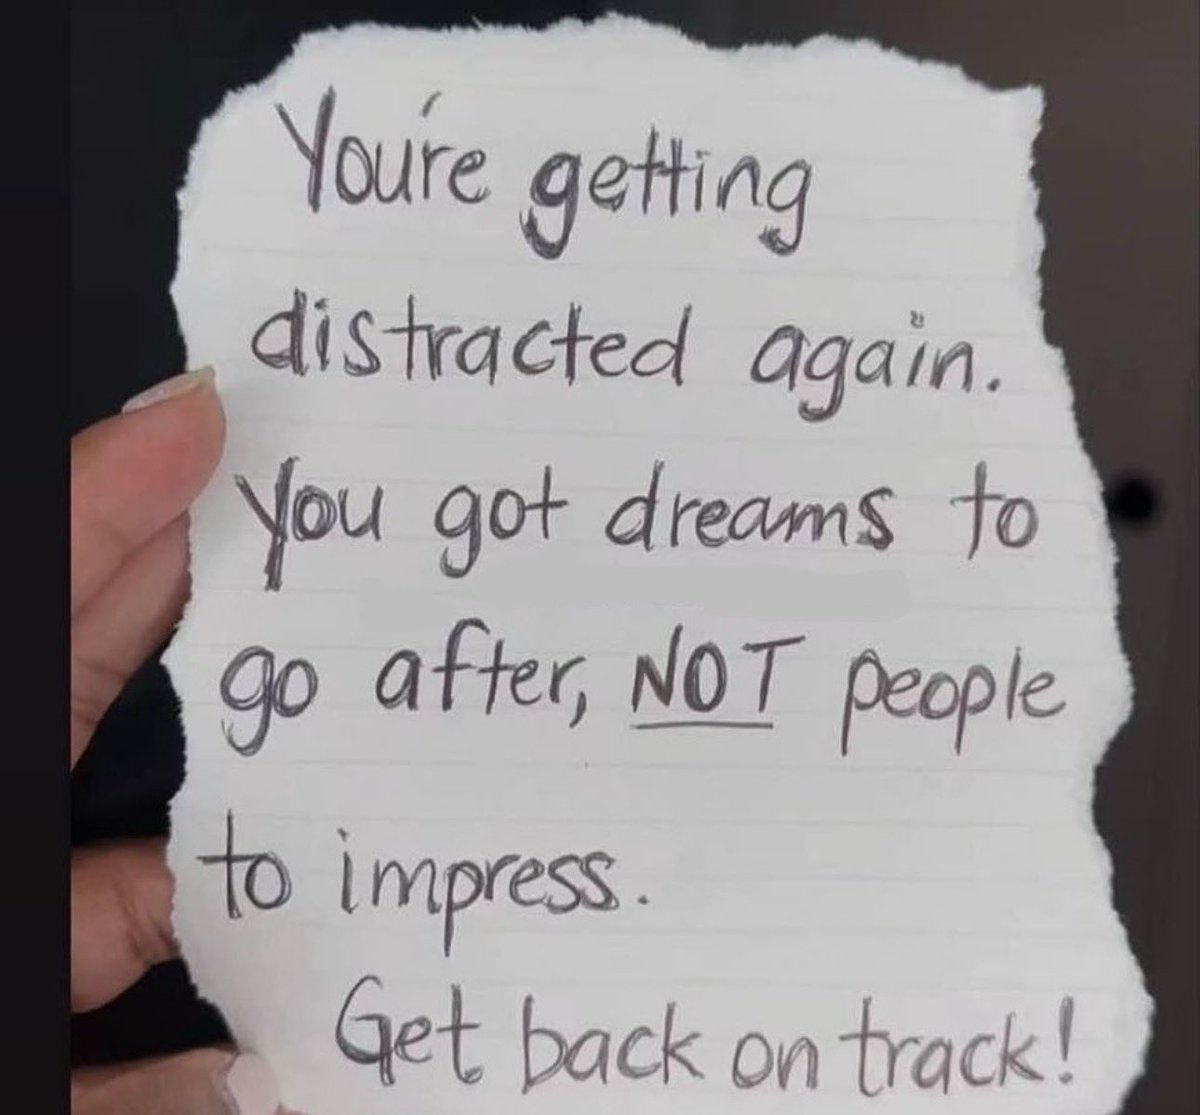 You're getting
distracted again.
You got dreams to
go after, NOT people
to impress.
Get back on track!